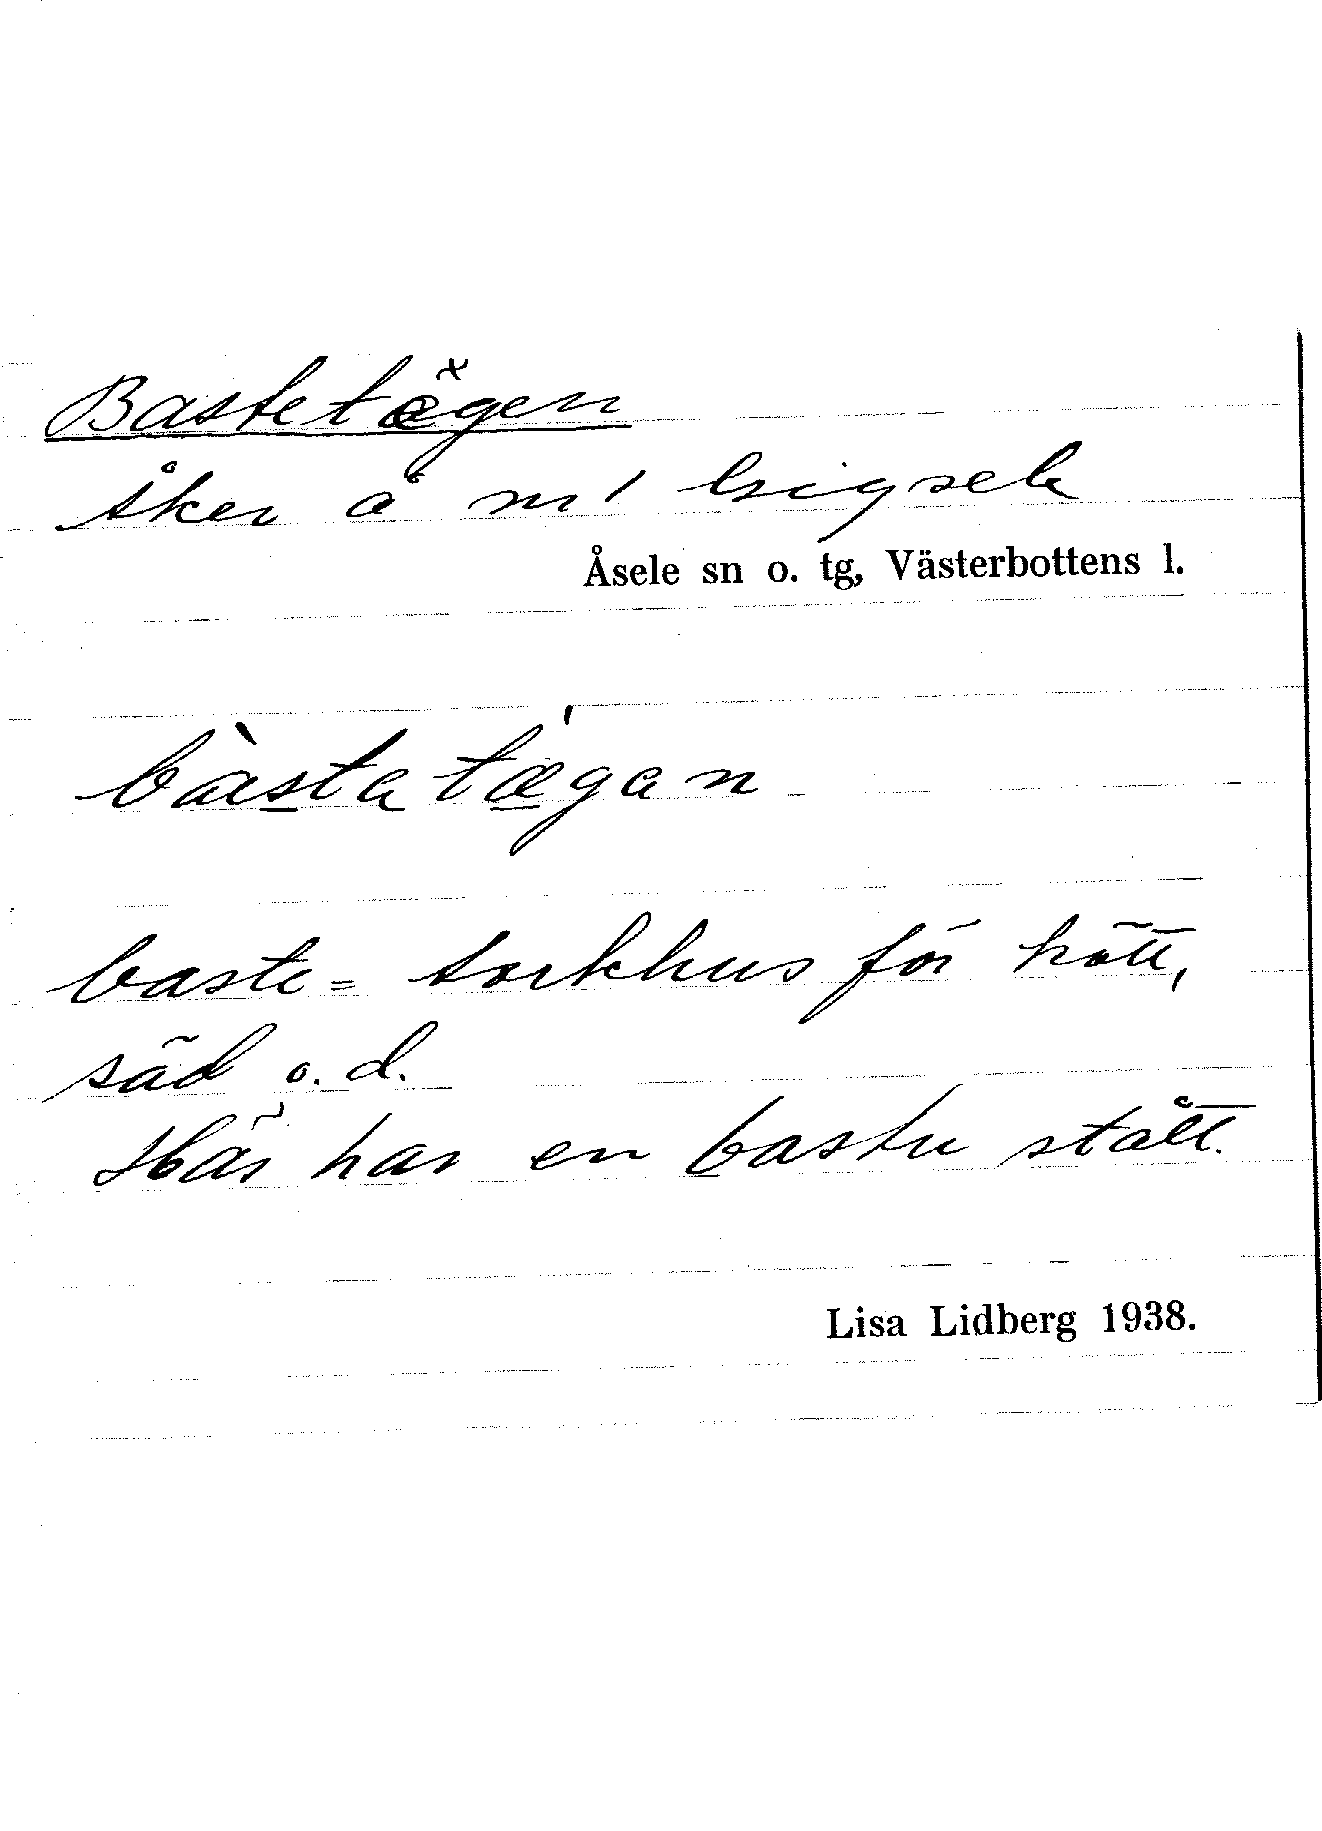 Bastetägen
åker å nr 1 Insjösele
Åsele sn o. tg, Västerbottens l.
bàstatǽgan
baste = torkhus för kött,
säd o. d.
Här har en bastu stått.
Lisa Lidberg 1938.